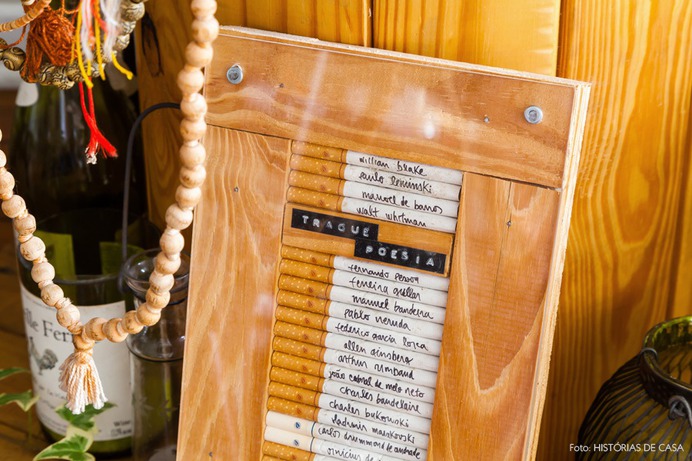 lle Fer
willian blake
paulo leminski
manoel de barros
walt whitman
TRAGUE
POESIA
fernando pessoa
ferreira gullar
manuel bandeira
pablo neruda
federico garcía lorca
allen ginsberg
arthur rimbaud
joão cabral de melo neto
charles baudelaire
charles bukowski
vladimir maiakovski
carlos drummond de andrade
vinicius de
Foto: HISTÓRIAS DE CASA